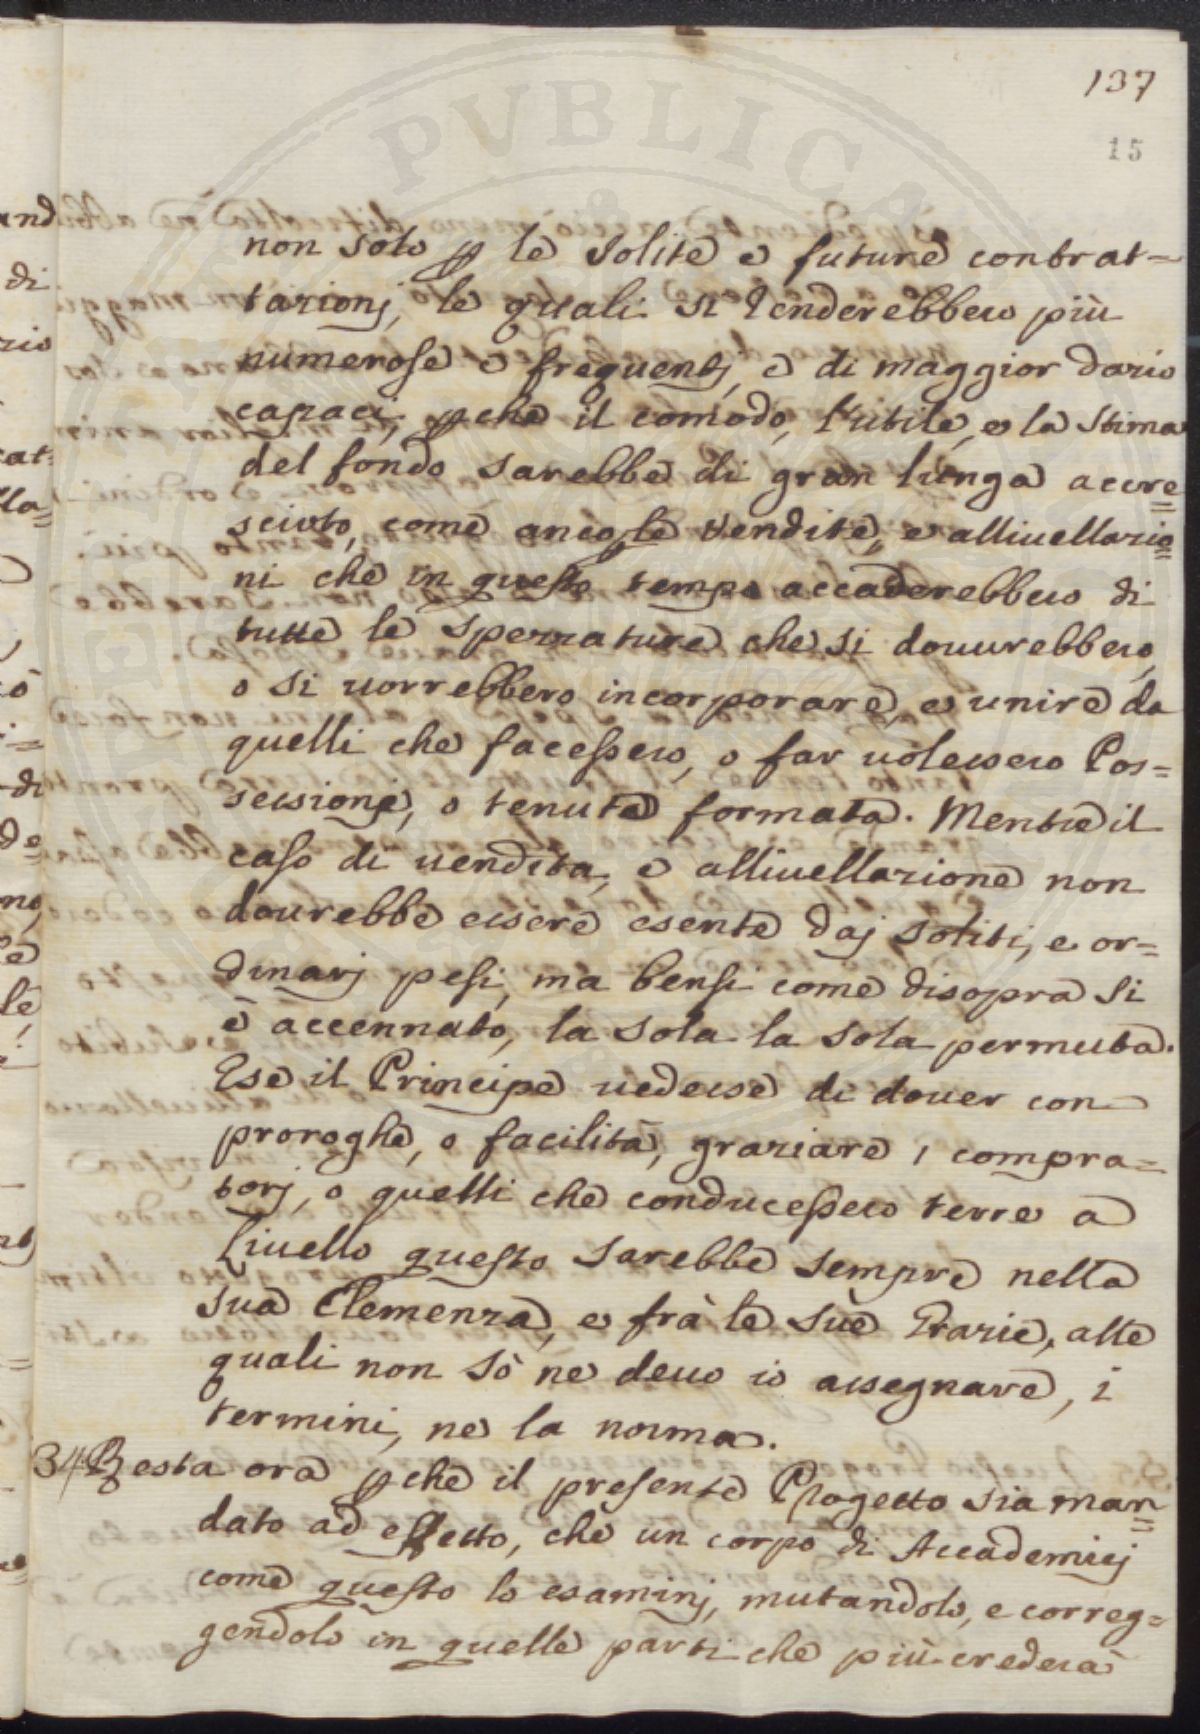 137
15
non solo p le solite e future contrat=
tazionj, le quali si renderebbero più
numerose e frequentj, e di maggior dazio
capaci, pche il comodo, l'utile, e la stima
del fondo sarebbe di gran lunga accre=
sciuto, come anco le vendite, e allivellazio=
ni che in questo tempo accaderebbero di
tutte le spezzature che si dovurebbero,
o si vorrebbero incorporare, e unire da
quelli che facessero, o far volessero Pos=
sessione, o tenuta formata. Mentre il
caso di vendita, e allivellazione non
dovrebbe essere esente daj soliti, e or=
dinarj pesi, ma bensi come disopra si
è accennato, la sola la sola permuta.
E se il Principe vedesse di dover con
proroghe, o facilità, graziare i compra=
torj, o quelli che conducessero terre a
Livello questo sarebbe sempre nella
sua Clemenza, e frà le sùe Grazie, alle
quali non sò ne devo io assegnare, i
termini, ne la norma.
34 Resta ora pche il presente Progetto sia man=
dato ad effetto, che un corpo di Accademicj
come questo lo esaminj, mutandolo, e correg=
gendolo in quelle parti che più crederà